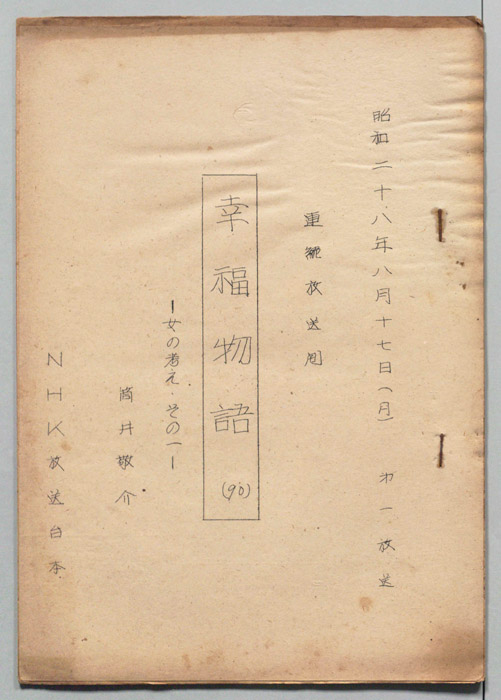 昭和二十八年八月十七日(月) 第一放送
連続放送用
幸福物語 (90)
ー女の考え・その一ー
筒井敬介
NHK放送台本